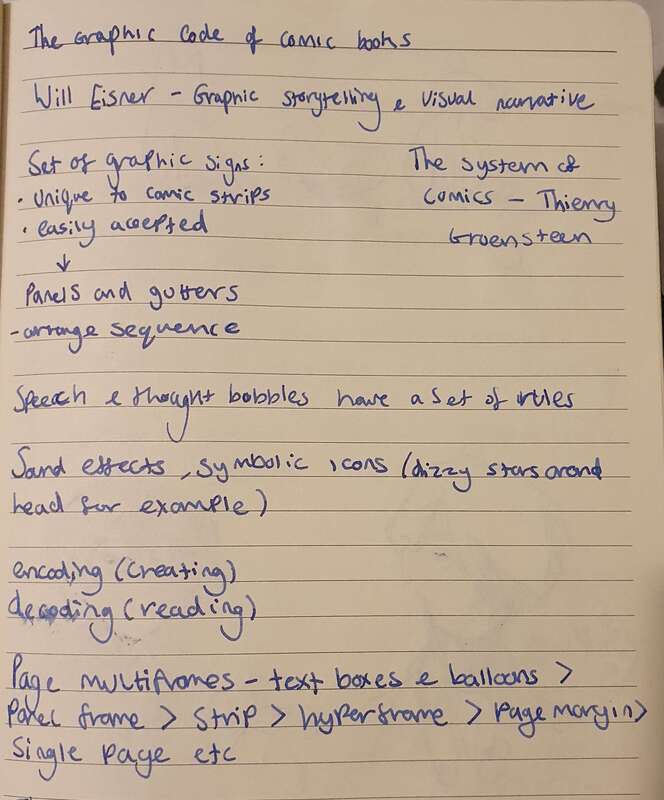 The Graphic Code of Comic books
Will Eisner - Graphic storytelling e visual narrative
Set of graphic signs:
• Unique to comic strips
• easily accepted
↓
Panels and gutters
- arrange sequence
The system of
Comics - Thierry
Groensteen
Speech e thought bobbles have a set of rules
Sound effects, symbolic icons (dizzy stars around
head for example)
encoding (creating)
decoding (reading)
Page multiframes - text boxes e balloons >
Panel frame > Strip > hyperframe > page margin >
Single page etc